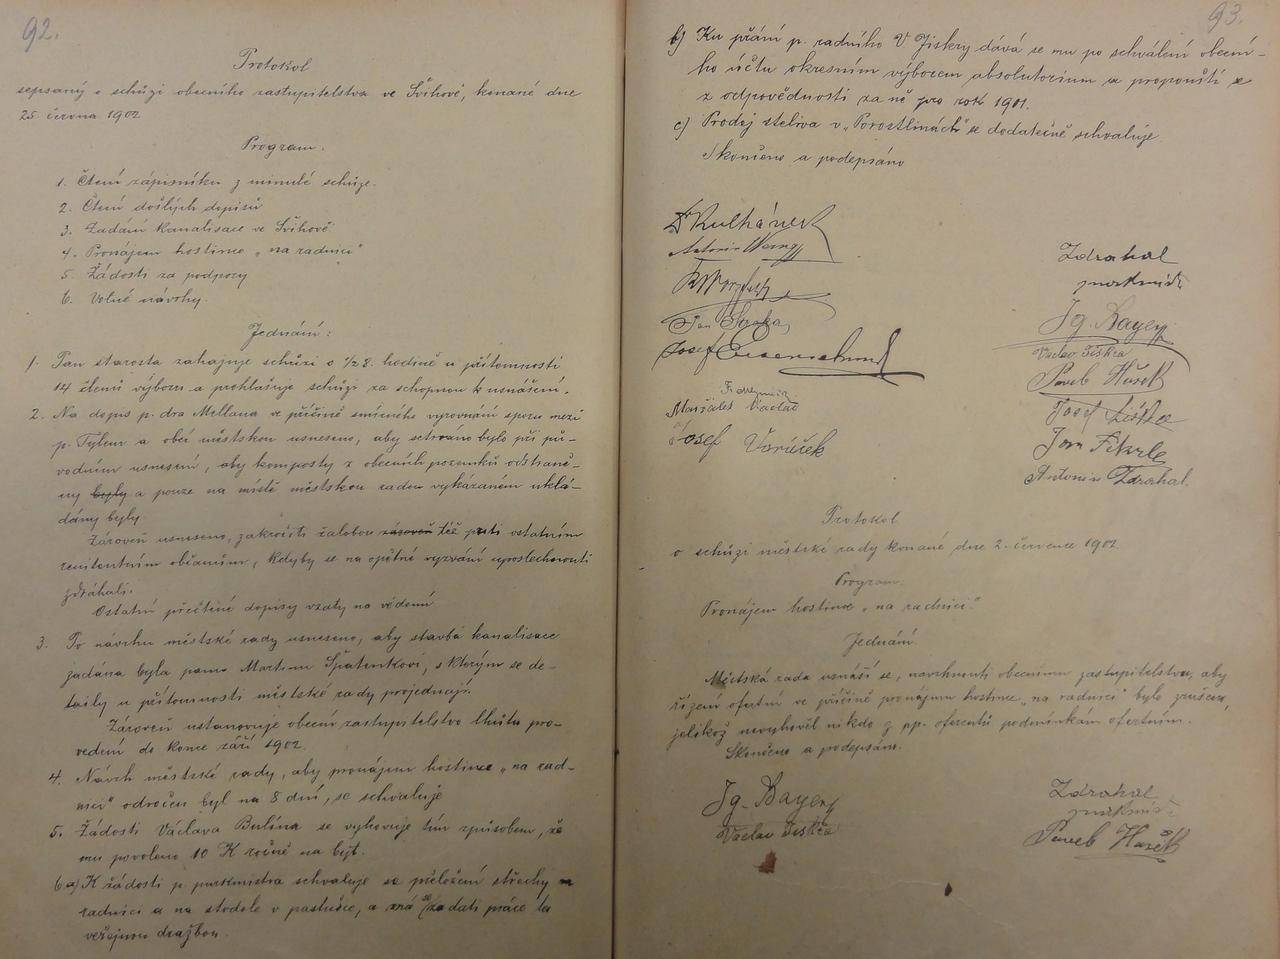 92.
Protokol
sepsaný o schůzi obecního zastupitelstva ve Švihově, konané dne
25. června 1902
Program.
1. Čtení zápisníku z minulé schůze.
2. Čtení došlých dopisů
3. Zadání kanalisace ve Švihově
4. Pronájem hostince „na radnici"
5. Žádosti za podpory
6. Volné návrhy.
Jednání:
1. Pan starosta zahajuje schůzi o ½8. hodině u přítomnosti
14 členů výboru a prohlašuje schůzi za schopnou k usnášení.
2. Na dopis p. dra Mellana ve příčině smírného vyrovnání sporu mezi
p. Tylem a obcí městskou usneseno, aby setrváno bylo při pů-
vodním usnesení, aby komposty z obecních pozemků odstraně-
ny byly a pouze na místě městskou radou vykázaném uklá-
dány byly.
Zároveň usneseno, zakročiti žalobou zároveň též proti ostatním
renitentním občanům, kdyby se na opětné vyzvání uposlechnouti
zdráhali.
Ostatní přečtené dopisy vzaty na vědomí
3. Po návrhu městské rady usneseno, aby stavba kanalisace
zadána byla panu Martinu Špatenkovi, s kterým se de-
taily u přítomnosti městské rady projednají.
Zároveň ustanovuje obecní zastupitelstvo lhůtu pro-
vedení do konce září 1902.
4. Návrh městské rady, aby pronájem hostince „na rad-
nici" odročen byl na 8 dní, se schvaluje
5. Žádosti Václava Bulína se vyhovuje tím způsobem, že
mu povoleno 10 K ročně na byt.
6 a) K žádosti p. purkmistra schvaluje se přeložení střechy na
radnici a na stodole v pastušce, a má se zadati práce ta
veřejnou dražbou.
93.
b) Ku přání p. radního V Jiskry dává se mu po schválení obecní-
ho účtu okresním výborem absolutorium a propouští se
z odpovědnosti za ně pro rok 1901.
c) Prodej steliva v „Porostlinách" se dodatečně schvaluje
Skončeno a podepsáno
Dr Kulhánek
Antonín
Jan
Josef
Maršálek Václav
Josef Voráček
Zdrahal
purkmistr
Ig. Bayer
Václav Jiskra
Pavel Hašek
Josef Liška
Jan Fikrle
Antonín Zdrahal.
Protokol
o schůzi městské rady konané dne 2. července 1902
Program:
Pronájem hostince „na radnici."
Jednání.
Městská rada usnáší se, navrhnouti obecnímu zastupitelstvu, aby
řízení ofertní ve příčině pronájmu hostince „na radnici" bylo zrušeno,
jelikož nevyhověl nikdo z pp. oferentů podmínkám ofertním.
Skončeno a podepsáno.
Ig. Bayer
Václav Jiskra
Zdrahal
purkmistr
Pavel Hašek